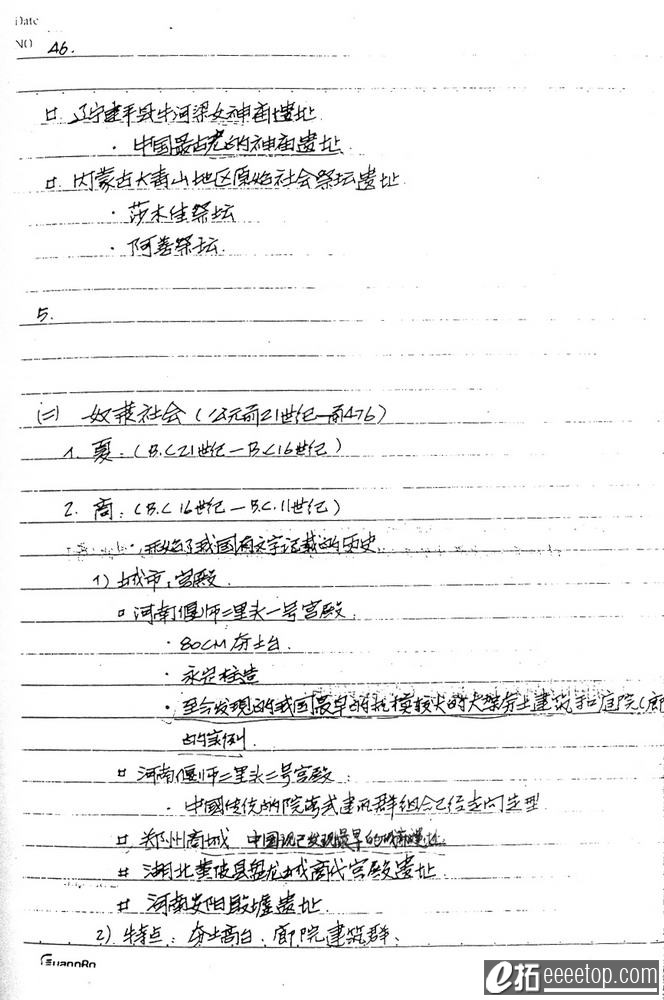 Date
NO 46.
□ 辽宁建平县牛河梁女神庙遗址
· 中国最古老的神庙遗址
□ 内蒙古大青山地区原始社会祭坛遗址
· 莎木佳祭坛
· 阿善祭坛.
5.
(二) 奴隶社会 (公元前21世纪—前476)
1. 夏. (B.C21世纪—B.C16世纪)
2. 商: (B.C16世纪—B.C.11世纪)
· 开始了我国有文字记载的历史
1) 城市, 宫殿.
□ 河南偃师二里头一号宫殿.
· 80CM夯土台.
· 永定柱造
· 至今发现的我国最早的规模较大的木架夯土建筑和庭院(廊
的实例.
□ 河南偃师二里头二号宫殿.
· 中國传统的院落式建筑群组合已经走向定型
□ 郑州商城 中国现已发现最早的城市遗址.
□ 湖北黄陂县盘龙城商代宫殿遗址
□ 河南安阳殷墟遗址
2) 特点: 夯土高台. 廊院建筑群.
GuangBo
e拓 eeeetop.com